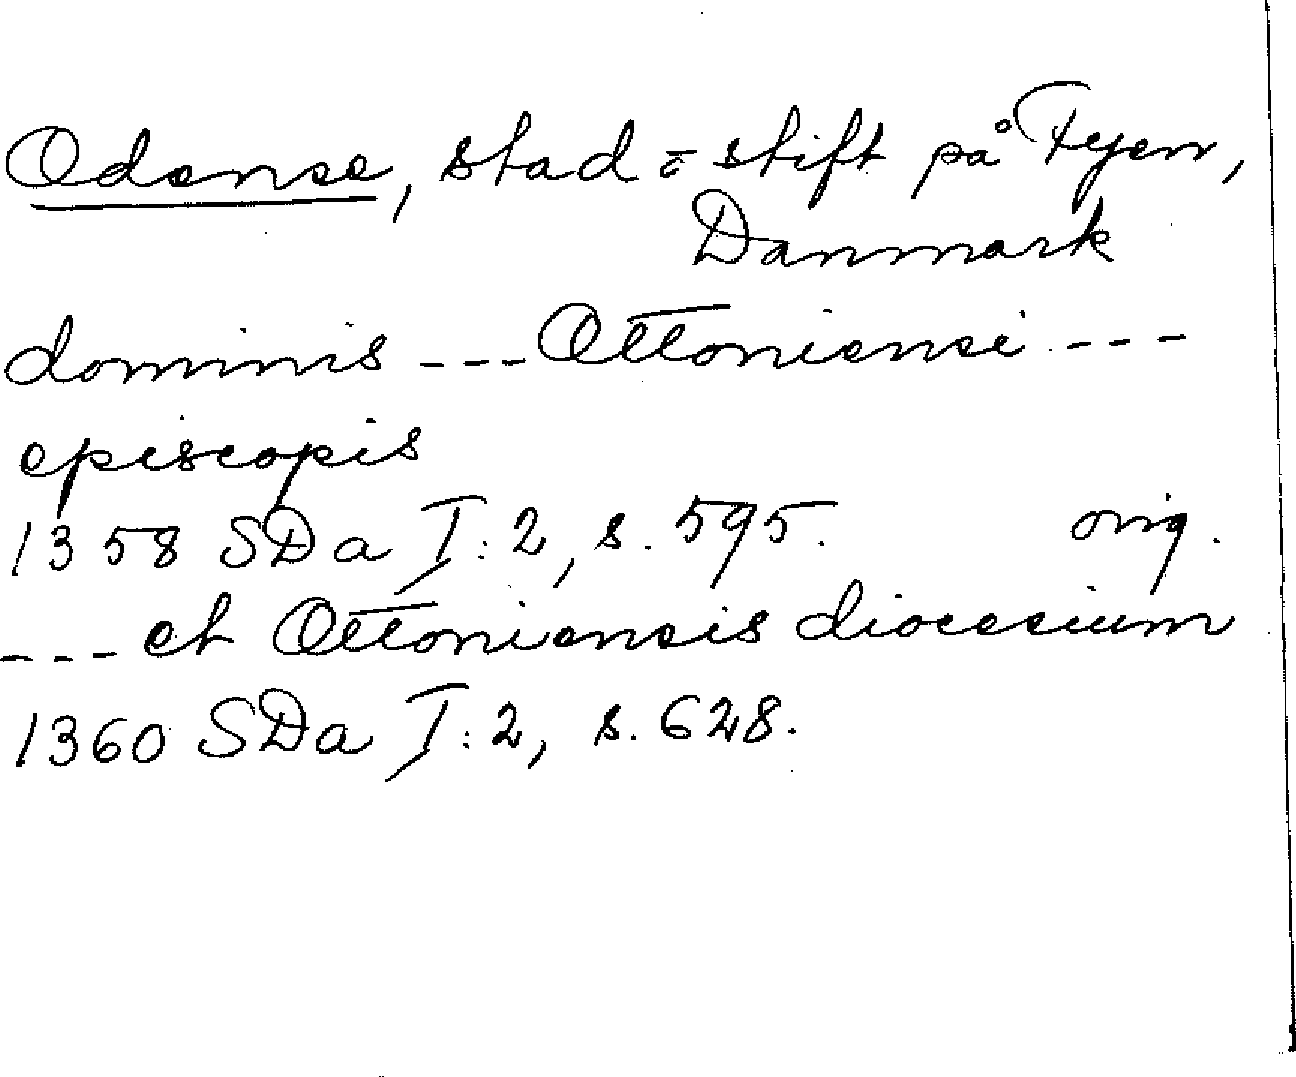 Odense, stad o stift på Fyen,
Danmark
dominis --- Ottoniensi ---
episcopis
1358 SDa I:2, s. 595. orig.
--- et Ottoniensis diocesium
1360 SDa I:2, s. 628.